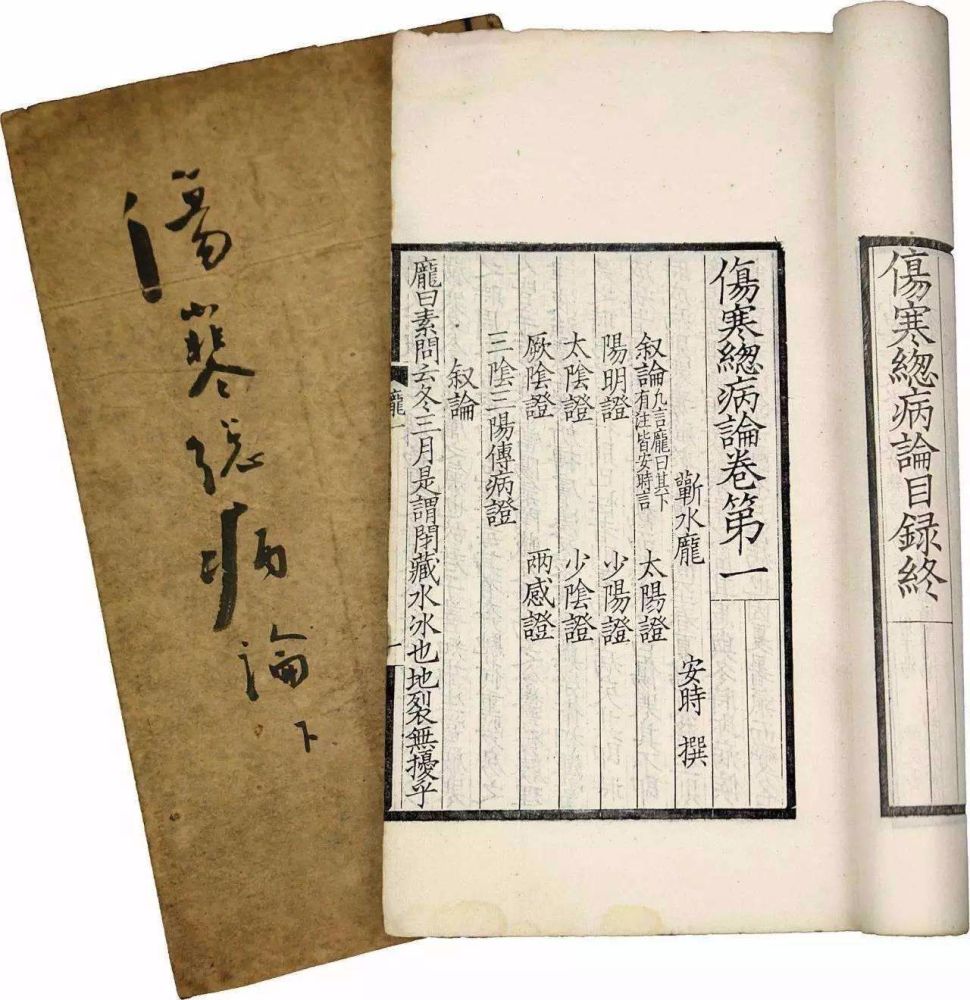 傷寒總病論目録終
傷寒總病論卷第一
蘄水龐 安時 撰
叙論凡言龐曰其下有注皆安時言 太陽證
陽明證 少陽證
太陰證 少陰證
厥陰證 兩感證
三陰三陽傳病證
叙論
龐曰素問云冬三月是謂閉藏水冰也地裂無擾乎
龐一
一
傷寒總病論下